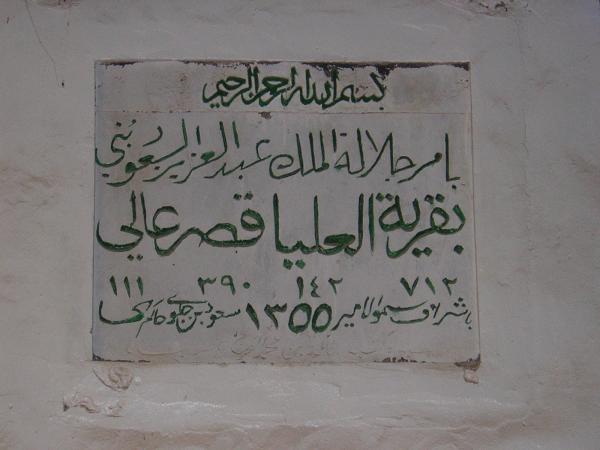 بسم الله الرحمن الرحيم
بامر جلالة الملك عبد العزيز السعود بُني
بقرية العليا قصر عالي
٧١٢ ١٤٢ ٣٩٠ ١١١
باشراف سمو الامير ١٣٥٥ سعود بن جلوي حاكم